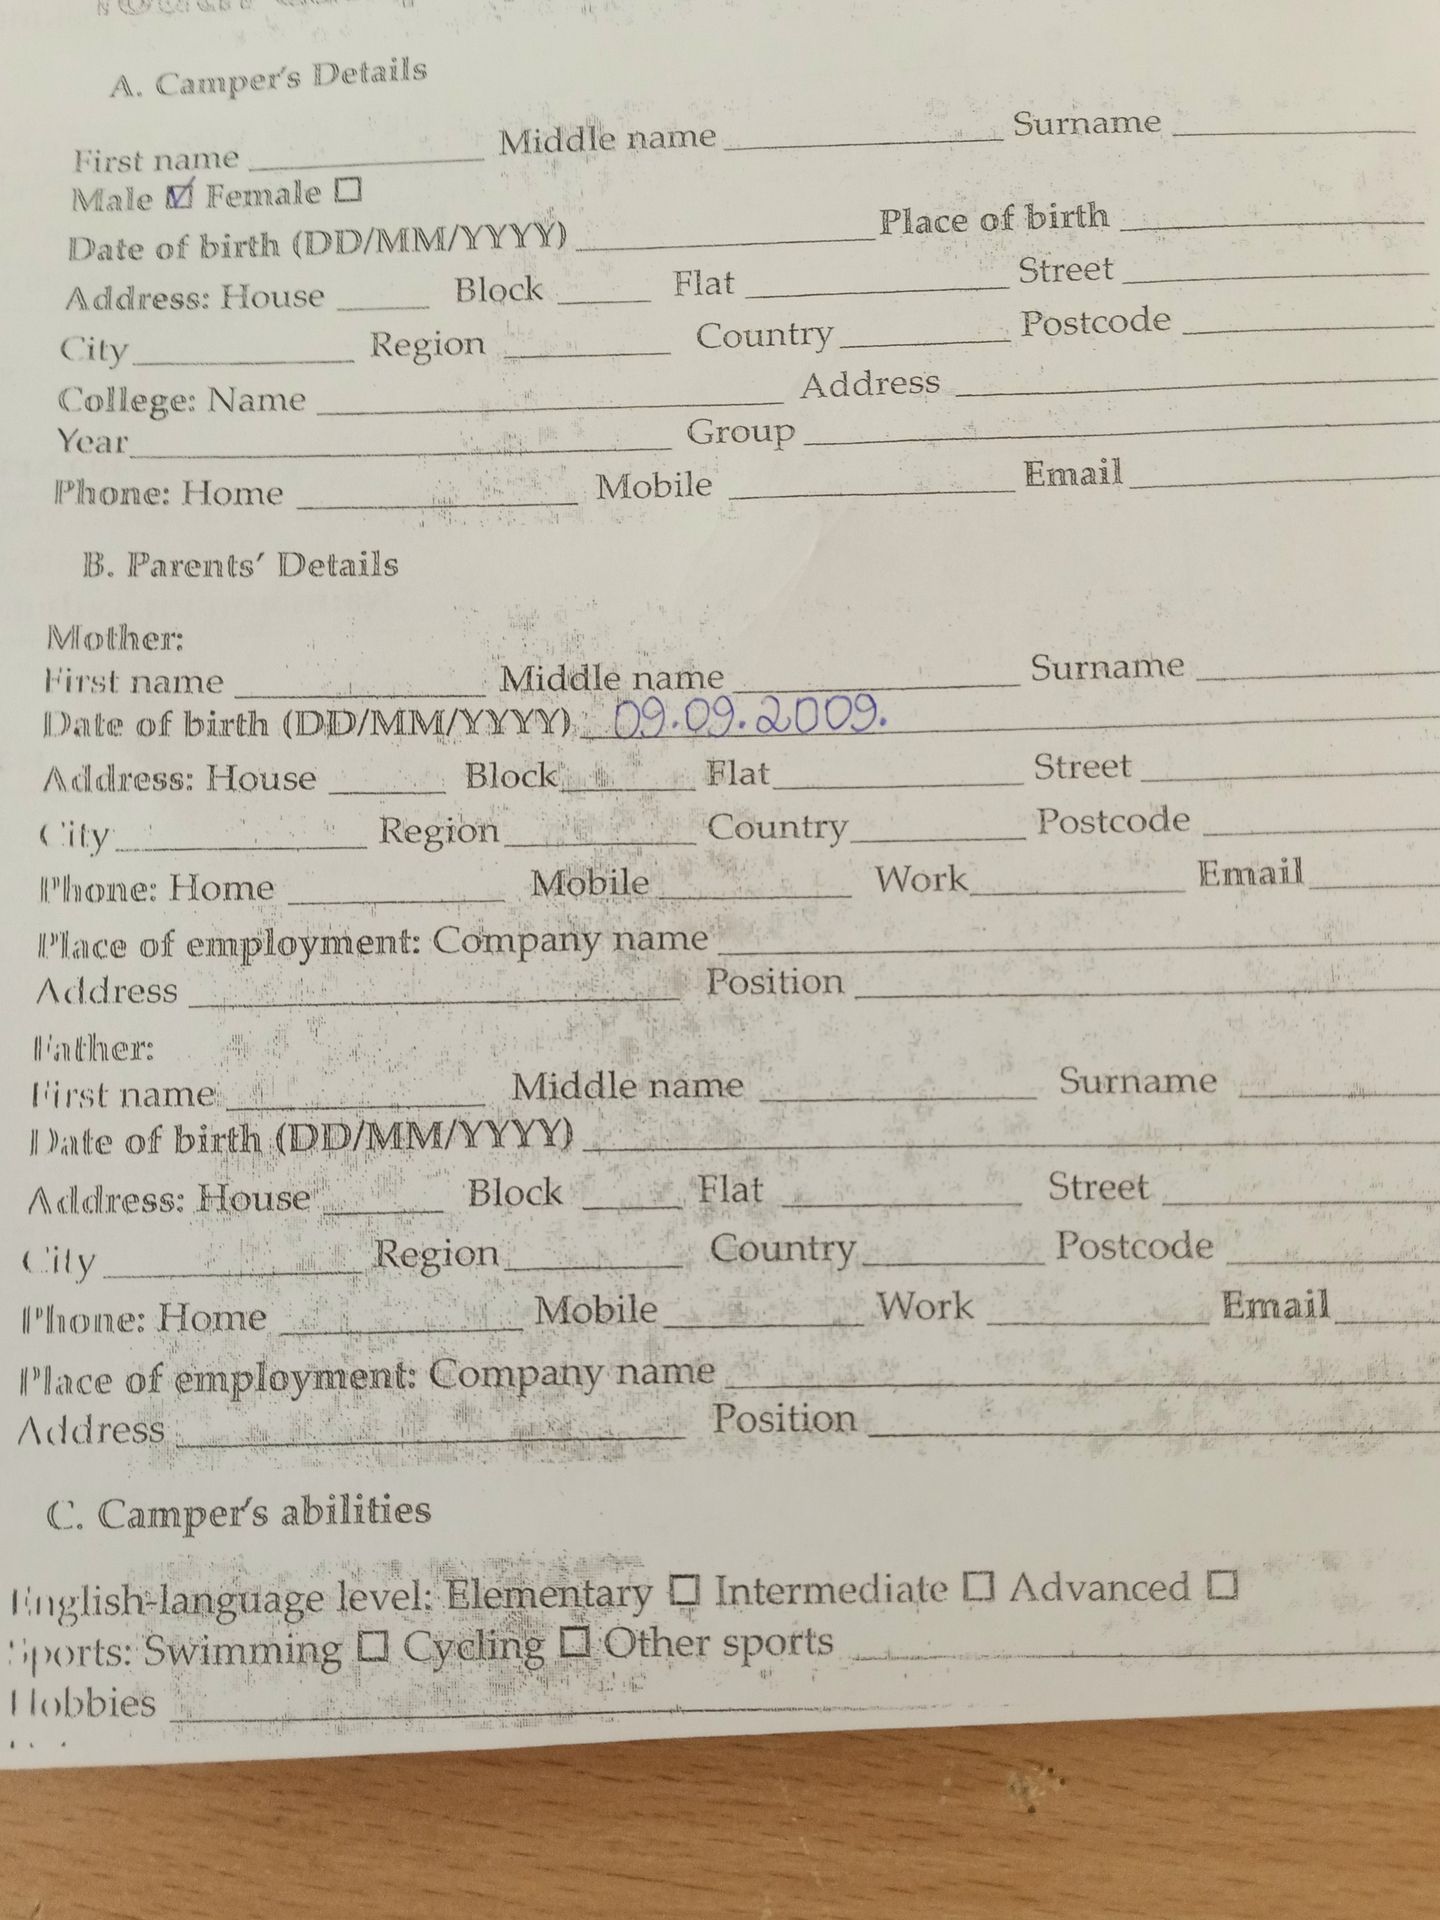 A. Camper's Details
First name ___ Middle name ___ Surname ___
Male ☑ Female ☐
Date of birth (DD/MM/YYYY) ___ Place of birth ___
Address: House ___ Block ___ Flat ___ Street ___
City ___ Region ___ Country ___ Postcode ___
College: Name ___ Address ___
Year ___ Group ___
Phone: Home ___ Mobile ___ Email ___
B. Parents' Details
Mother:
First name ___ Middle name ___ Surname ___
Date of birth (DD/MM/YYYY) 09.09.2009.
Address: House ___ Block ___ Flat ___ Street ___
City ___ Region ___ Country ___ Postcode ___
Phone: Home ___ Mobile ___ Work ___ Email ___
Place of employment: Company name ___
Address ___ Position ___
Father:
First name ___ Middle name ___ Surname ___
Date of birth (DD/MM/YYYY) ___
Address: House ___ Block ___ Flat ___ Street ___
City ___ Region ___ Country ___ Postcode ___
Phone: Home ___ Mobile ___ Work ___ Email ___
Place of employment: Company name ___
Address ___ Position ___
C. Camper's abilities
English-language level: Elementary ☐ Intermediate ☐ Advanced ☐
Sports: Swimming ☐ Cycling ☐ Other sports ___
Hobbies ___